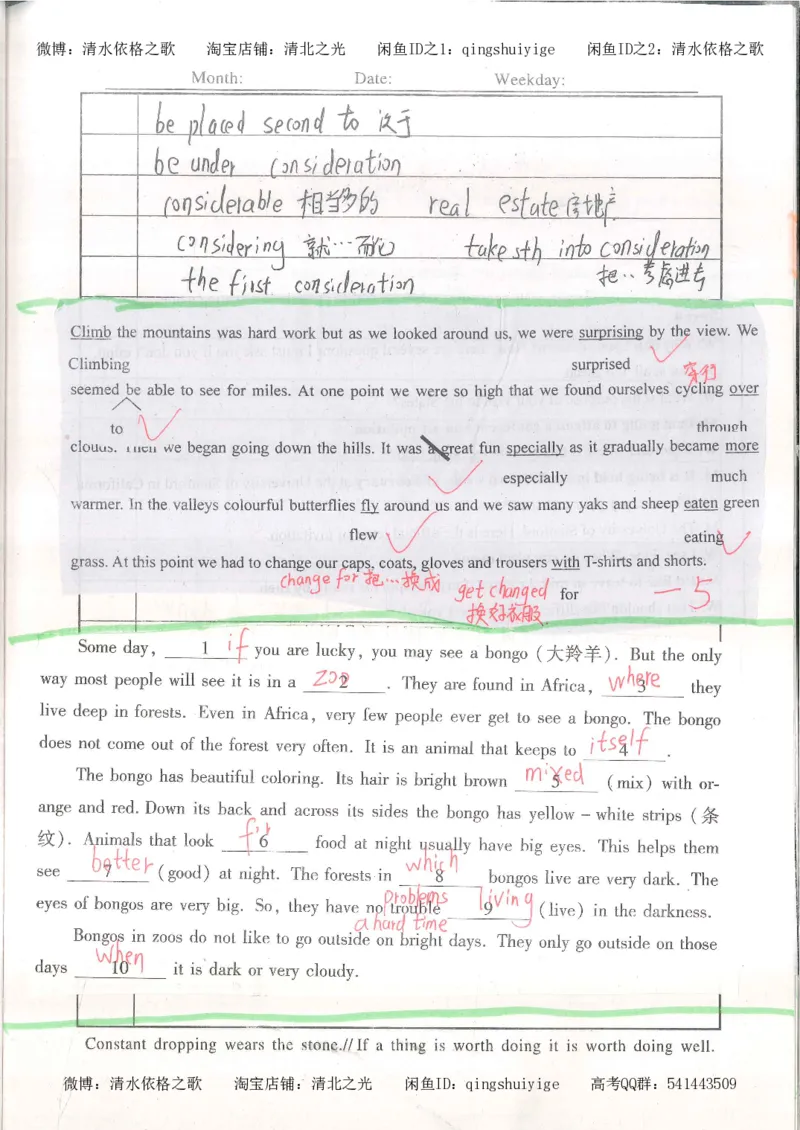 微博：清水依格之歌 淘宝店铺：清北之光 闲鱼ID之1：qingshuiyige 闲鱼ID之2：清水依格之歌
Month: Date: Weekday:
be placed second to 次于
be under consideration
considerable 相当多的 real estate 房地产
considering 就…而论 take sth into consideration
the first consideration 把..考虑进去
Climb the mountains was hard work but as we looked around us, we were surprising by the view. We
Climbing surprised
seemed be able to see for miles. At one point we were so high that we found ourselves cycling over
to through
clouds. Then we began going down the hills. It was a great fun specially as it gradually became more
especially much
warmer. In the valleys colourful butterflies fly around us and we saw many yaks and sheep eaten green
flew eating
grass. At this point we had to change our caps, coats, gloves and trousers with T-shirts and shorts.
change for 把…换成 get changed for －5
Some day, 1 if you are lucky, you may see a bongo (大羚羊). But the only
way most people will see it is in a zoo 2 . They are found in Africa, where 3 they
live deep in forests. Even in Africa, very few people ever get to see a bongo. The bongo
does not come out of the forest very often. It is an animal that keeps to itself 4 .
The bongo has beautiful coloring. Its hair is bright brown mixed 5 (mix) with or-
ange and red. Down its back and across its sides the bongo has yellow – white strips (条
纹). Animals that look for 6 food at night usually have big eyes. This helps them
see better 7 (good) at night. The forests in which 8 bongos live are very dark. The
problems living
eyes of bongos are very big. So, they have no trouble 9 (live) in the darkness.
a hard time
Bongos in zoos do not like to go outside on bright days. They only go outside on those
days when 10 it is dark or very cloudy.
Constant dropping wears the stone.//If a thing is worth doing it is worth doing well.
微博：清水依格之歌 淘宝店铺：清北之光 闲鱼ID：qingshuiyige 高考QQ群：541443509